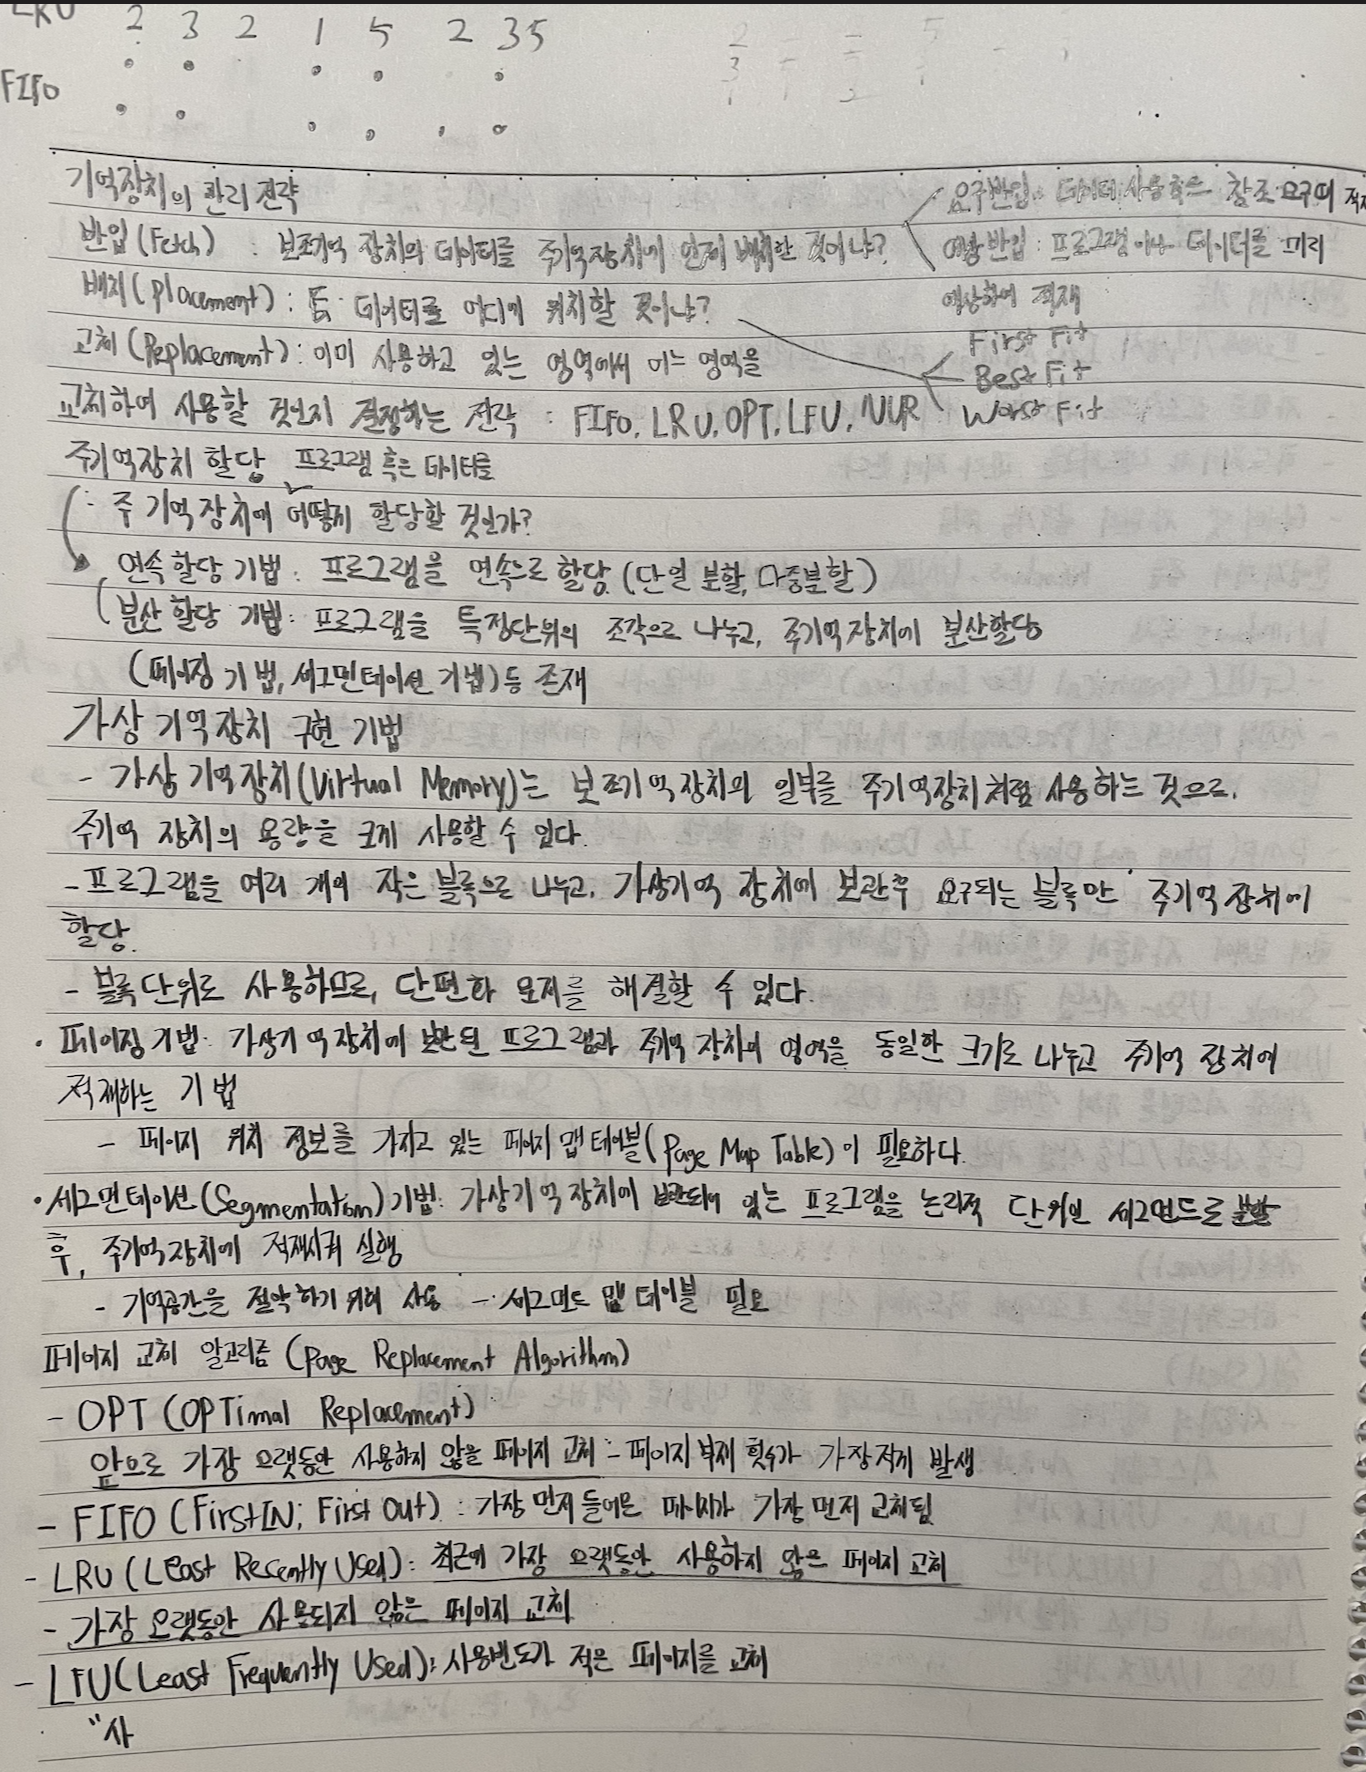 LRU 2 3 2 1 5 2 35
FIFO
기억장치의 관리 전략
요구반입: 데이터 사용 혹은 참조 요구때 적재
반입(Fetch) : 보조기억 장치의 데이터를 주기억장치에 언제 배치할 것이냐?
예상 반입 : 프로그램이나 데이터를 미리
예상하여 적재
배치(Placement) : 데이터를 어디에 위치할 것이냐?
First Fit
Best Fit
Worst Fit
교체(Replacement) : 이미 사용하고 있는 영역에서 어느 영역을
교체하여 사용할 것인지 결정하는 전략 : FIFO, LRU, OPT, LFU, NUR
주기억장치 할당 프로그램 혹은 데이터를
: 주 기억장치에 어떻게 할당할 것인가?
연속 할당 기법 : 프로그램을 연속으로 할당 (단일 분할, 다중분할)
분산 할당 기법 : 프로그램을 특정단위의 조각으로 나누고, 주기억장치에 분산할당
(페이징 기법, 세그먼테이션 기법)등 존재
가상 기억장치 구현 기법
- 가상 기억장치(Virtual Memory)는 보조기억장치의 일부를 주기억장치처럼 사용하는 것으로,
주기억 장치의 용량을 크게 사용할 수 있다.
- 프로그램을 여러 개의 작은 블록으로 나누고, 가상기억 장치에 보관후 요구되는 블록만 주기억장치에
할당.
- 블록단위로 사용하므로, 단편화 문제를 해결할 수 있다.
• 페이징 기법: 가상기억장치에 보관된 프로그램과 주기억 장치의 영역을 동일한 크기로 나누고 주기억 장치에
적재하는 기법
- 페이지 위치 정보를 가지고 있는 페이지 맵 테이블(Page Map Table)이 필요하다.
• 세그먼테이션(Segmentation)기법: 가상기억장치에 보관되어 있는 프로그램을 논리적 단위인 세그먼트로 분할
후, 주기억장치에 적재시켜 실행
- 기억공간을 절약하기 위해 사용 - 세그먼트 맵 테이블 필요
페이지 교체 알고리즘 (Page Replacement Algorithm)
- OPT (OPTimal Replacement)
앞으로 가장 오랫동안 사용하지 않을 페이지 교체 - 페이지 부재 횟수가 가장적게 발생
- FIFO (First IN; First Out) : 가장 먼저 들어온 페이지가 가장 먼저 교체됨
- LRU (Least Recently Used) : 최근에 가장 오랫동안 사용하지 않은 페이지 교체
- 가장 오랫동안 사용되지 않은 페이지 교체
- LFU (Least Frequently Used) : 사용빈도가 적은 페이지를 교체
"사